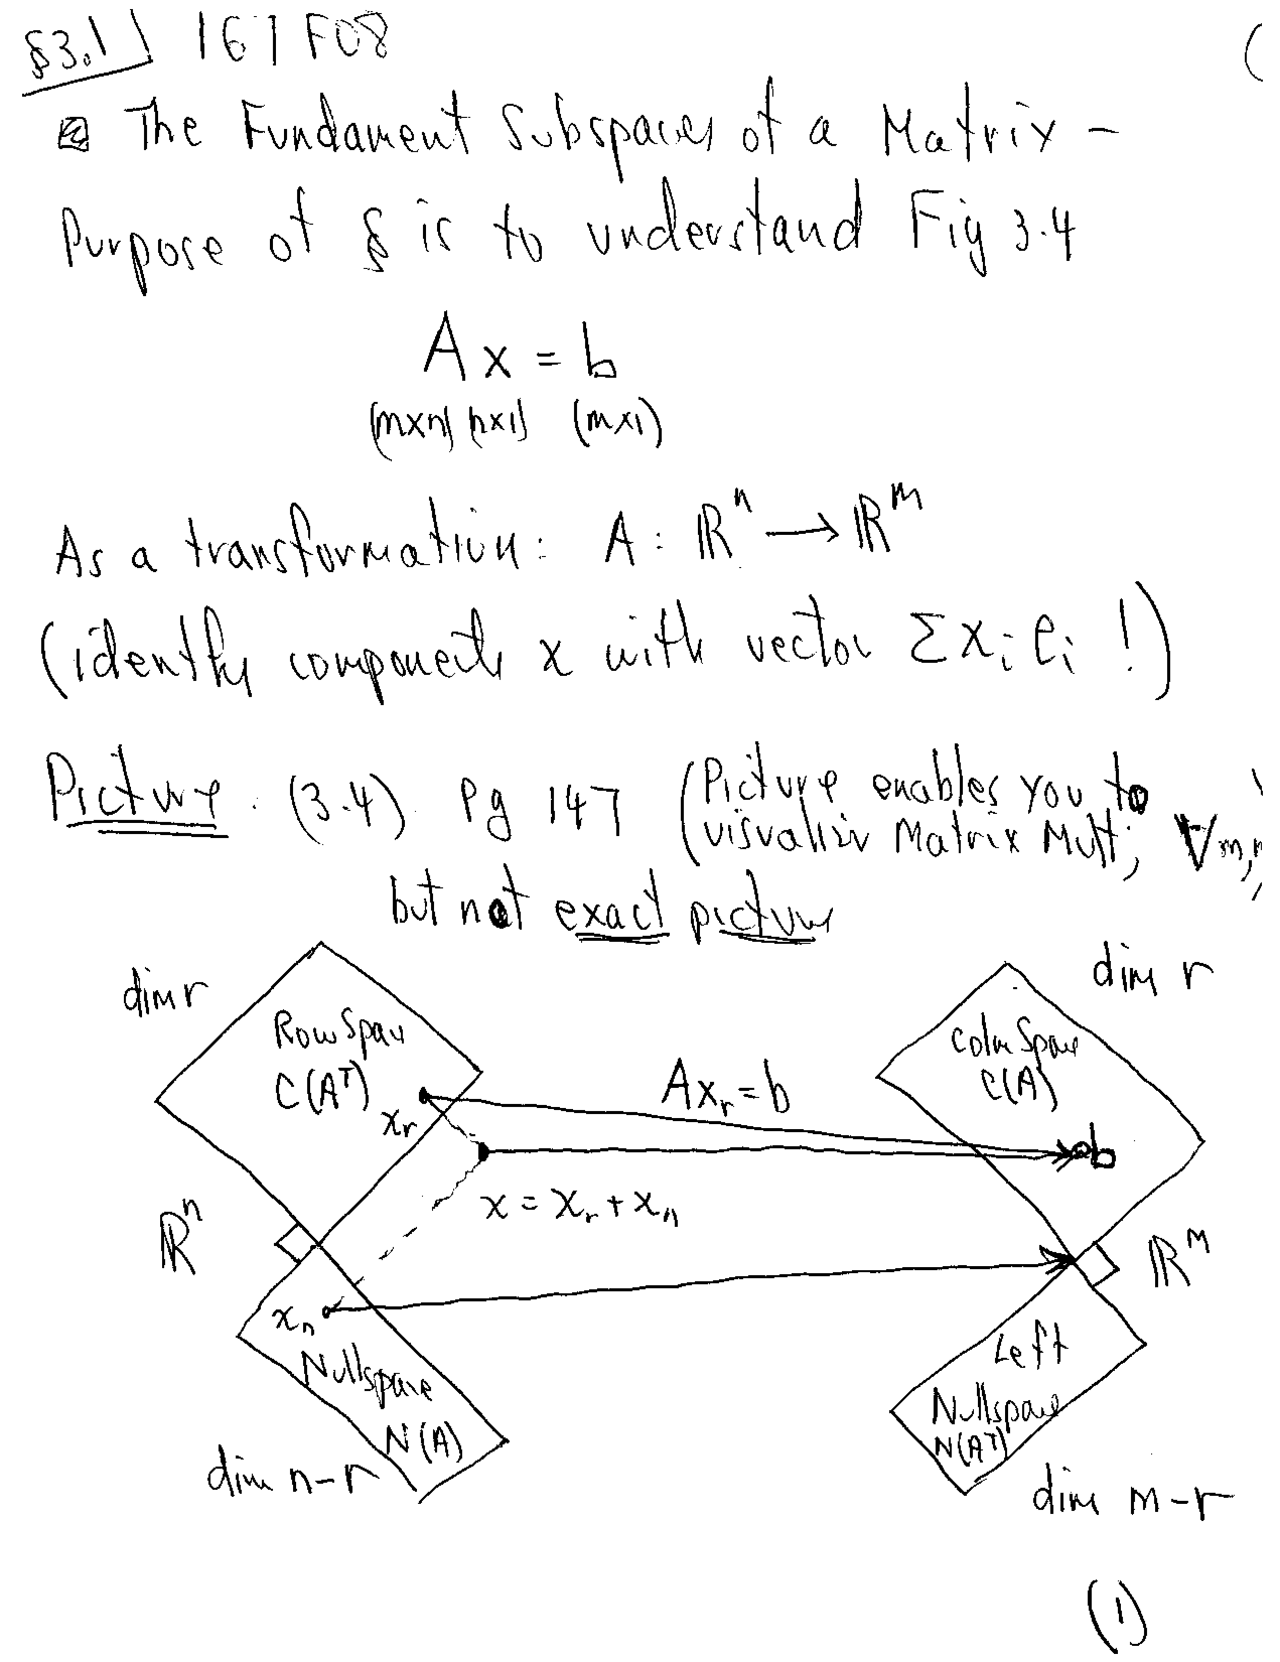 §3.1 167 F08
The Fundament Subspaces of a Matrix -
Purpose of § is to understand Fig 3.4
Ax = b
(m×n) (n×1) (m×1)
As a transformation: A : ℝⁿ → ℝᵐ
(identify components x with vector Σ xᵢ eᵢ !)
Picture (3.4) Pg 147 (Picture enables you to
visualize Matrix Mult; ∀ m,n
but not exact picture
dim r
Row Space
C(Aᵀ)
xᵣ
Axᵣ = b
dim r
Colm Space
C(A)
b
x = xᵣ + xₙ
ℝⁿ
ℝᵐ
xₙ
Nullspace
N(A)
dim n-r
Left
Nullspace
N(Aᵀ)
dim m-r
(1)